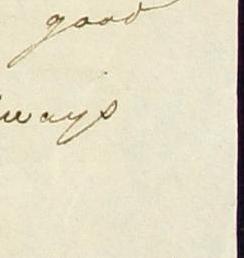 good
ways